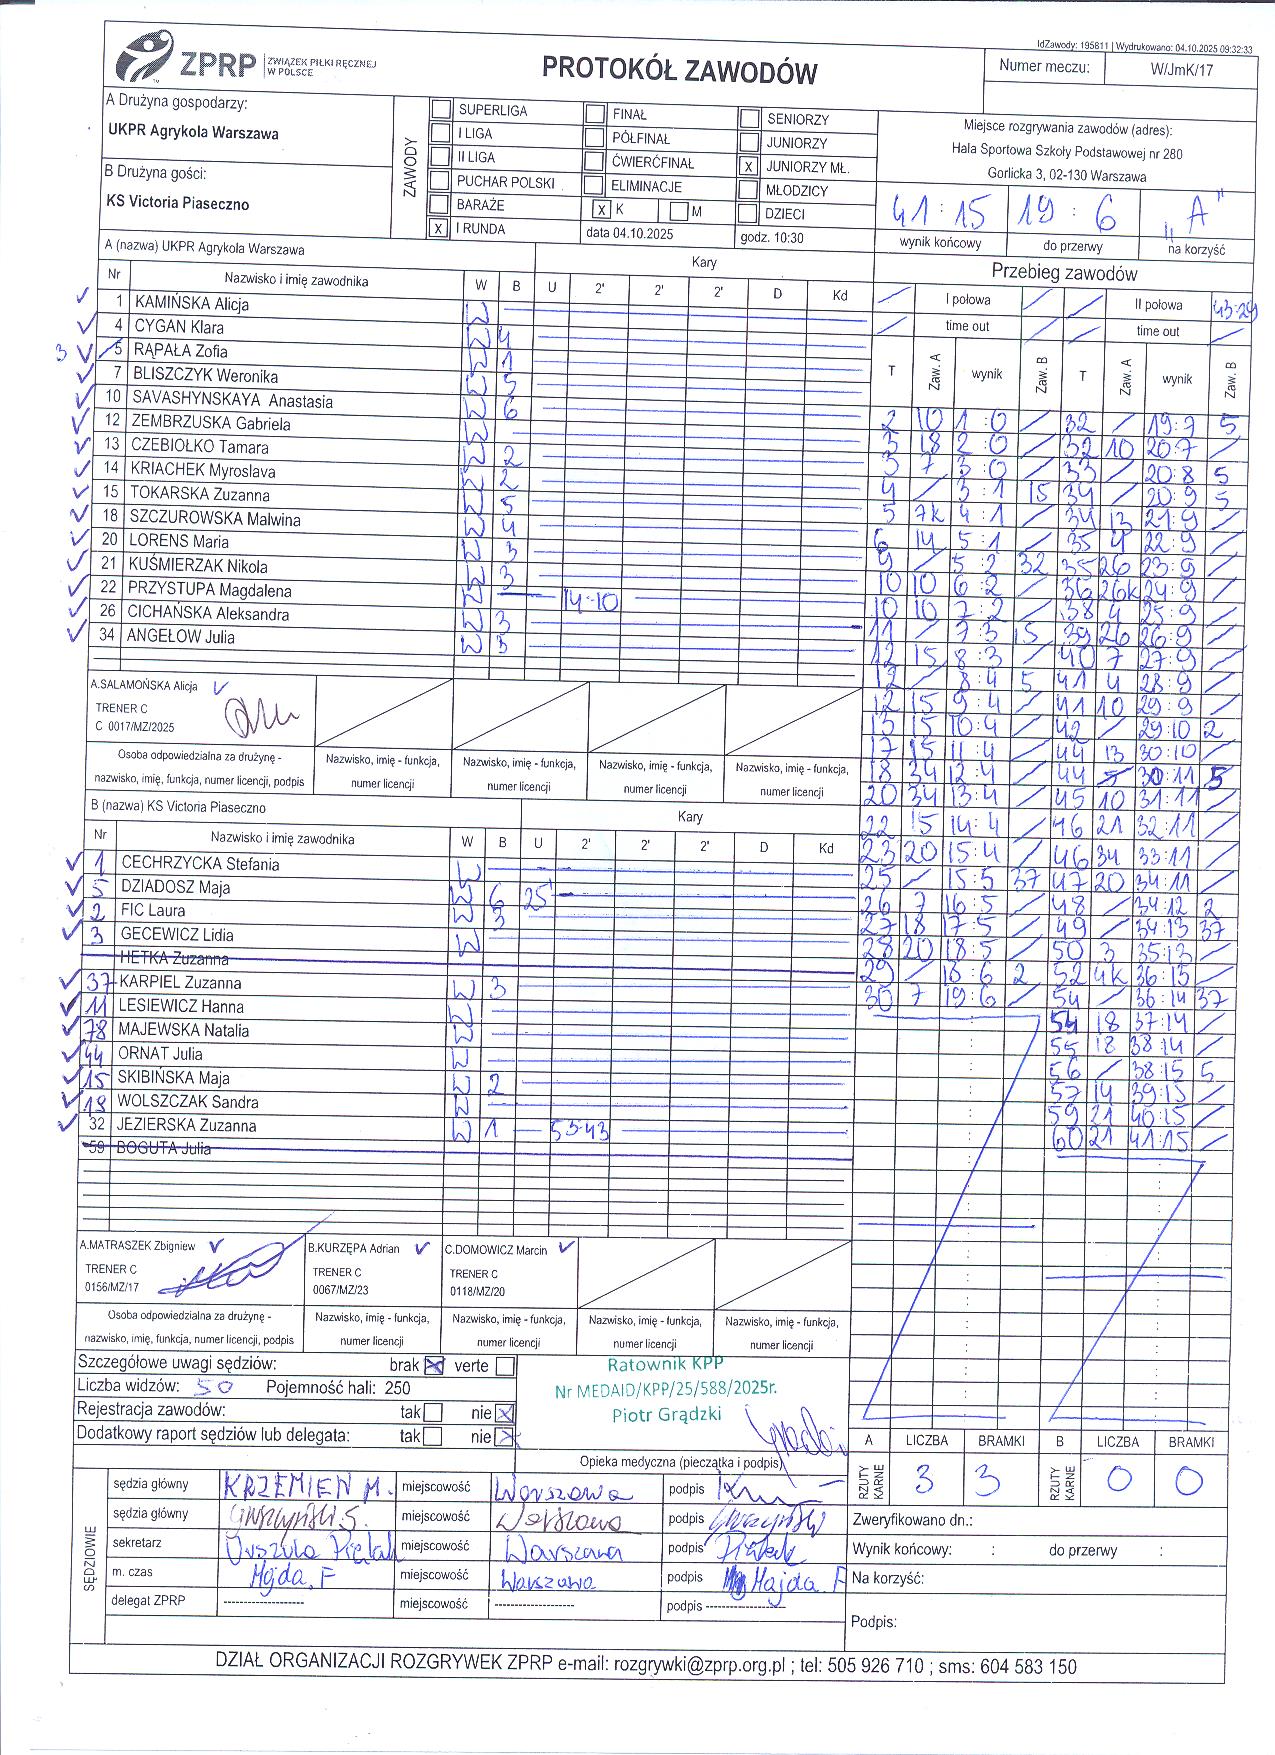 IdZawody: 195811 | Wydrukowano: 04.10.2025 09:32:33
ZPRP ZWIĄZEK PIŁKI RĘCZNEJ W POLSCE
PROTOKÓŁ ZAWODÓW
Numer meczu: W/JmK/17
A Drużyna gospodarzy:
UKPR Agrykola Warszawa
B Drużyna gości:
KS Victoria Piaseczno
ZAWODY
SUPERLIGA
I LIGA
II LIGA
PUCHAR POLSKI
BARAŻE
x I RUNDA
FINAŁ
PÓŁFINAŁ
ĆWIERĆFINAŁ
ELIMINACJE
x K M
data 04.10.2025
SENIORZY
JUNIORZY
x JUNIORZY MŁ.
MŁODZICY
DZIECI
godz. 10:30
Miejsce rozgrywania zawodów (adres):
Hala Sportowa Szkoły Podstawowej nr 280
Gorlicka 3, 02-130 Warszawa
41:15 19:6 "A"
wynik końcowy do przerwy na korzyść
A (nazwa) UKPR Agrykola Warszawa
Kary
Nr Nazwisko i imię zawodnika W B U 2' 2' 2' D Kd
1 KAMIŃSKA Alicja W
4 CYGAN Klara W 4
3 5 RĄPAŁA Zofia W 1
7 BLISZCZYK Weronika W 5
10 SAVASHYNSKAYA Anastasia W 6
12 ZEMBRZUSKA Gabriela W
13 CZEBIOŁKO Tamara W 2
14 KRIACHEK Myroslava W 2
15 TOKARSKA Zuzanna W 5
18 SZCZUROWSKA Malwina W 4
20 LORENS Maria W 3
21 KUŚMIERZAK Nikola W 3
22 PRZYSTUPA Magdalena W 14-10
26 CICHAŃSKA Aleksandra W 3
34 ANGEŁOW Julia W 3
A.SALAMOŃSKA Alicja
TRENER C
C 0017/MZ/2025
Osoba odpowiedzialna za drużynę - nazwisko, imię, funkcja, numer licencji, podpis
Nazwisko, imię - funkcja, numer licencji
Nazwisko, imię - funkcja, numer licencji
Nazwisko, imię - funkcja, numer licencji
Nazwisko, imię - funkcja, numer licencji
B (nazwa) KS Victoria Piaseczno
Kary
Nr Nazwisko i imię zawodnika W B U 2' 2' 2' D Kd
1 CECHRZYCKA Stefania W
5 DZIADOSZ Maja W 6 25'
2 FIC Laura W 3
3 GECEWICZ Lidia W
HETKA Zuzanna
37 KARPIEL Zuzanna W 3
11 LESIEWICZ Hanna W
78 MAJEWSKA Natalia W
44 ORNAT Julia W
15 SKIBIŃSKA Maja W 2
18 WOLSZCZAK Sandra W
32 JEZIERSKA Zuzanna W 1 53-43
59 BOGUTA Julia
A.MATRASZEK Zbigniew
TRENER C
0156/MZ/17
B.KURZĘPA Adrian
TRENER C
0067/MZ/23
C.DOMOWICZ Marcin
TRENER C
0118/MZ/20
Osoba odpowiedzialna za drużynę - nazwisko, imię, funkcja, numer licencji, podpis
Nazwisko, imię - funkcja, numer licencji
Nazwisko, imię - funkcja, numer licencji
Nazwisko, imię - funkcja, numer licencji
Nazwisko, imię - funkcja, numer licencji
Przebieg zawodów
I połowa II połowa 43:29
time out time out
T Zaw. A wynik Zaw. B T Zaw. A wynik Zaw. B
2 10 1:0 / 32 / 19:7 5
3 18 2:0 / 32 10 20:7 /
3 7 3:0 / 33 / 20:8 5
4 / 3:1 15 34 / 20:9 5
5 7k 4:1 / 34 13 21:9 /
6 14 5:1 / 35 4 22:9 /
9 / 5:2 32 35 26 23:9 /
10 10 6:2 / 36 26k 24:9 /
10 10 7:2 / 38 4 25:9 /
11 / 7:3 15 39 26 26:9 /
12 15 8:3 / 40 7 27:9 /
12 / 8:4 5 41 4 28:9 /
12 15 9:4 / 41 10 29:9 /
13 15 10:4 / 42 / 29:10 2
17 15 11:4 / 44 13 30:10 /
18 34 12:4 / 44 30:11 5
20 34 13:4 / 45 10 31:11 /
22 15 14:4 / 46 21 32:11 /
23 20 15:4 / 46 34 33:11 /
25 / 15:5 37 47 20 34:11 /
26 7 16:5 / 48 / 34:12 2
27 18 17:5 / 49 / 34:13 37
28 20 18:5 / 50 3 35:13 /
29 / 18:6 2 52 4k 36:13 /
30 7 19:6 / 54 / 36:14 37
54 18 37:14 /
55 18 38:14 /
56 / 38:15 5
57 14 39:15 /
59 21 40:15 /
60 21 41:15 /
Szczegółowe uwagi sędziów: brak x verte
Liczba widzów: 50 Pojemność hali: 250
Rejestracja zawodów: tak nie x
Dodatkowy raport sędziów lub delegata: tak nie x
Ratownik KPP
Nr MEDAID/KPP/25/588/2025r.
Piotr Grądzki
Opieka medyczna (pieczątka i podpis)
A LICZBA BRAMKI B LICZBA BRAMKI
RZUTY KARNE 3 3 RZUTY KARNE 0 0
SĘDZIOWIE
sędzia główny KRZEMIEN M. miejscowość Warszawa podpis
sędzia główny miejscowość Warszawa podpis
sekretarz Urszula miejscowość Warszawa podpis
m. czas Majda F miejscowość Warszawa podpis Majda F
delegat ZPRP ------------------ miejscowość ------------------ podpis ------------------
Zweryfikowano dn.:
Wynik końcowy: : do przerwy :
Na korzyść:
Podpis:
DZIAŁ ORGANIZACJI ROZGRYWEK ZPRP e-mail: rozgrywki@zprp.org.pl ; tel: 505 926 710 ; sms: 604 583 150